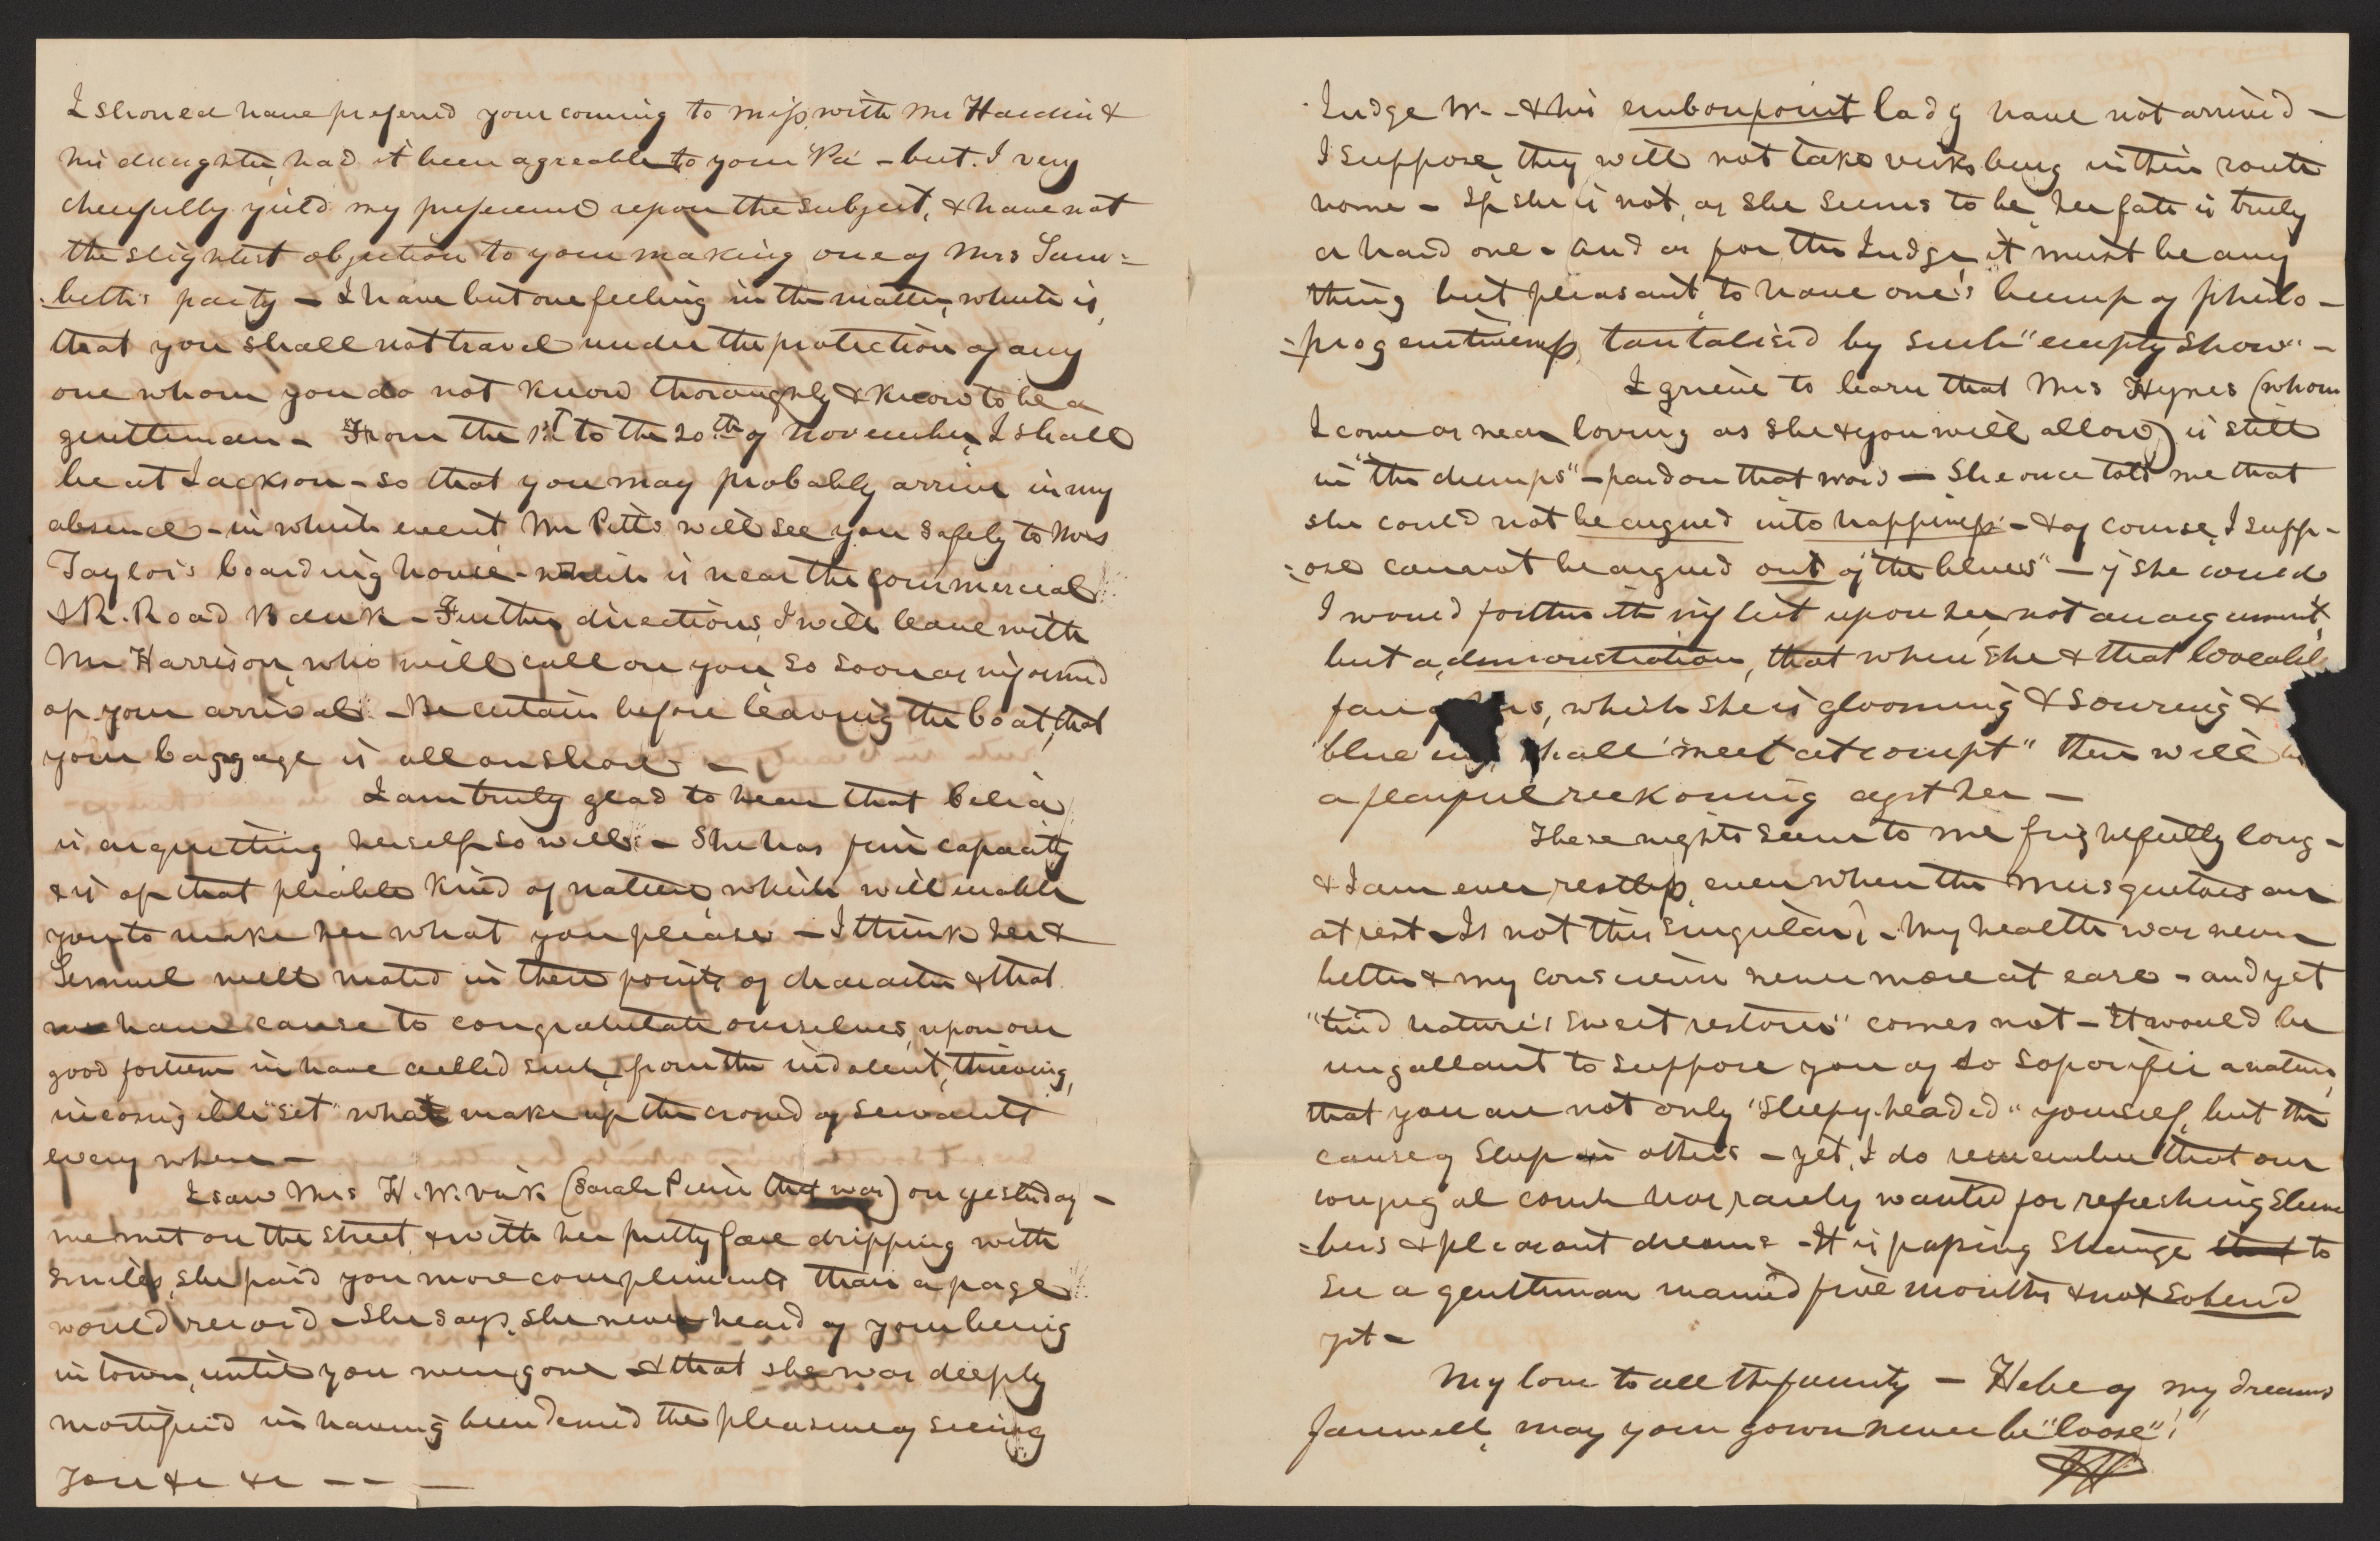 I should have prefered your coming to Miss. with Mr Hardin &
his daughter, had it been agreable to your Pa - but I very
cheerfully yield my preference upon the subject, & have not
the slightest objection to your making one of Mrs Lam=
=beth's party - I have but one feeling in the matter, which is,
that you shall not travel under the protection of any
one whom you do not know thoroughly & know to be a
gentleman - From the 1st to the 20th of November, I shall
be at Jackson - so that you may probably arrive in my
absence - in which event Mr Pitts will see you safely to Mrs
Taylor's boarding house - which is near the Commercial
& R. Road Bank - Further directions, I will leave with
Mr Harrison, who will call on you, so soon as informed
of your arrival - Be certain before leaving the boat, that
your baggage is all on shore -
I am truly glad to hear that Celia
is acquitting herself so well - She has fine capacity
& is of that pliable kind of nature, which will enable
you to make her what you please - I think her &
Lemuel well mated in these points of character & that
we have cause to congratulate ourselves, upon our
good fortune in have culled such, from the indolent, thieving,
incorrigible "set" what make up the crowd of servants
every where -
I saw Mrs H. W. Vick (Sarah Pierce that was) on yesterday -
we met on the street, & with her pretty face dripping with
smiles, she paid you more compliments than a page
would record - She says, she never heard of your being
in town, until you were gone - & that she was deeply
mortified in having been denied the pleasure of seeing
you &c &c - - -
Judge W. - & his embonpoint lady have not arrived -
I suppose, they will not take Vicksburg in their route
home - If she is not, as she seems to be, her fate is truly
a hard one - and as for the Judge, it must be any
thing but pleasant, to have one's bump of philo -
=progenitiveness, tantalised by such "empty show" -
I grieve to learn that Mrs Hynes (whom
I come as near loving as she & you will allow) is still
in "the dumps" - pardon that word - She once told me that
she could not be argued into happiness - & of course, I supp -
=ose cannot be argued out of "the blues" - if she could
I would forthwith inflict upon her, not an argument,
but a demonstration, that when she & that loveable
which she is glooming & souring &
blue shall "meet at compt" there will
a fearful reckoning agst her -
These nights seem to me frightfully long -
& I am ever restless, even when the musquitoes are
at rest - Is not this singular? - My health was never
better & my conscience never more at ease - and yet
"tired nature's sweet restorer" comes not - It would be
ungallant to suppose you of so soporific a nature,
that you are not only "sleepy-headed" yourself, but the
cause of sleep in others - yet, I do remember that our
conjugal couch has rarely wanted for refreshing slum
=bers & pleasant dreams - It is passing strange that to
see a gentleman married five months & not sobered
yet -
My love to all the family - Hebe of my dreams
farewell, may your gown never be "loose"!